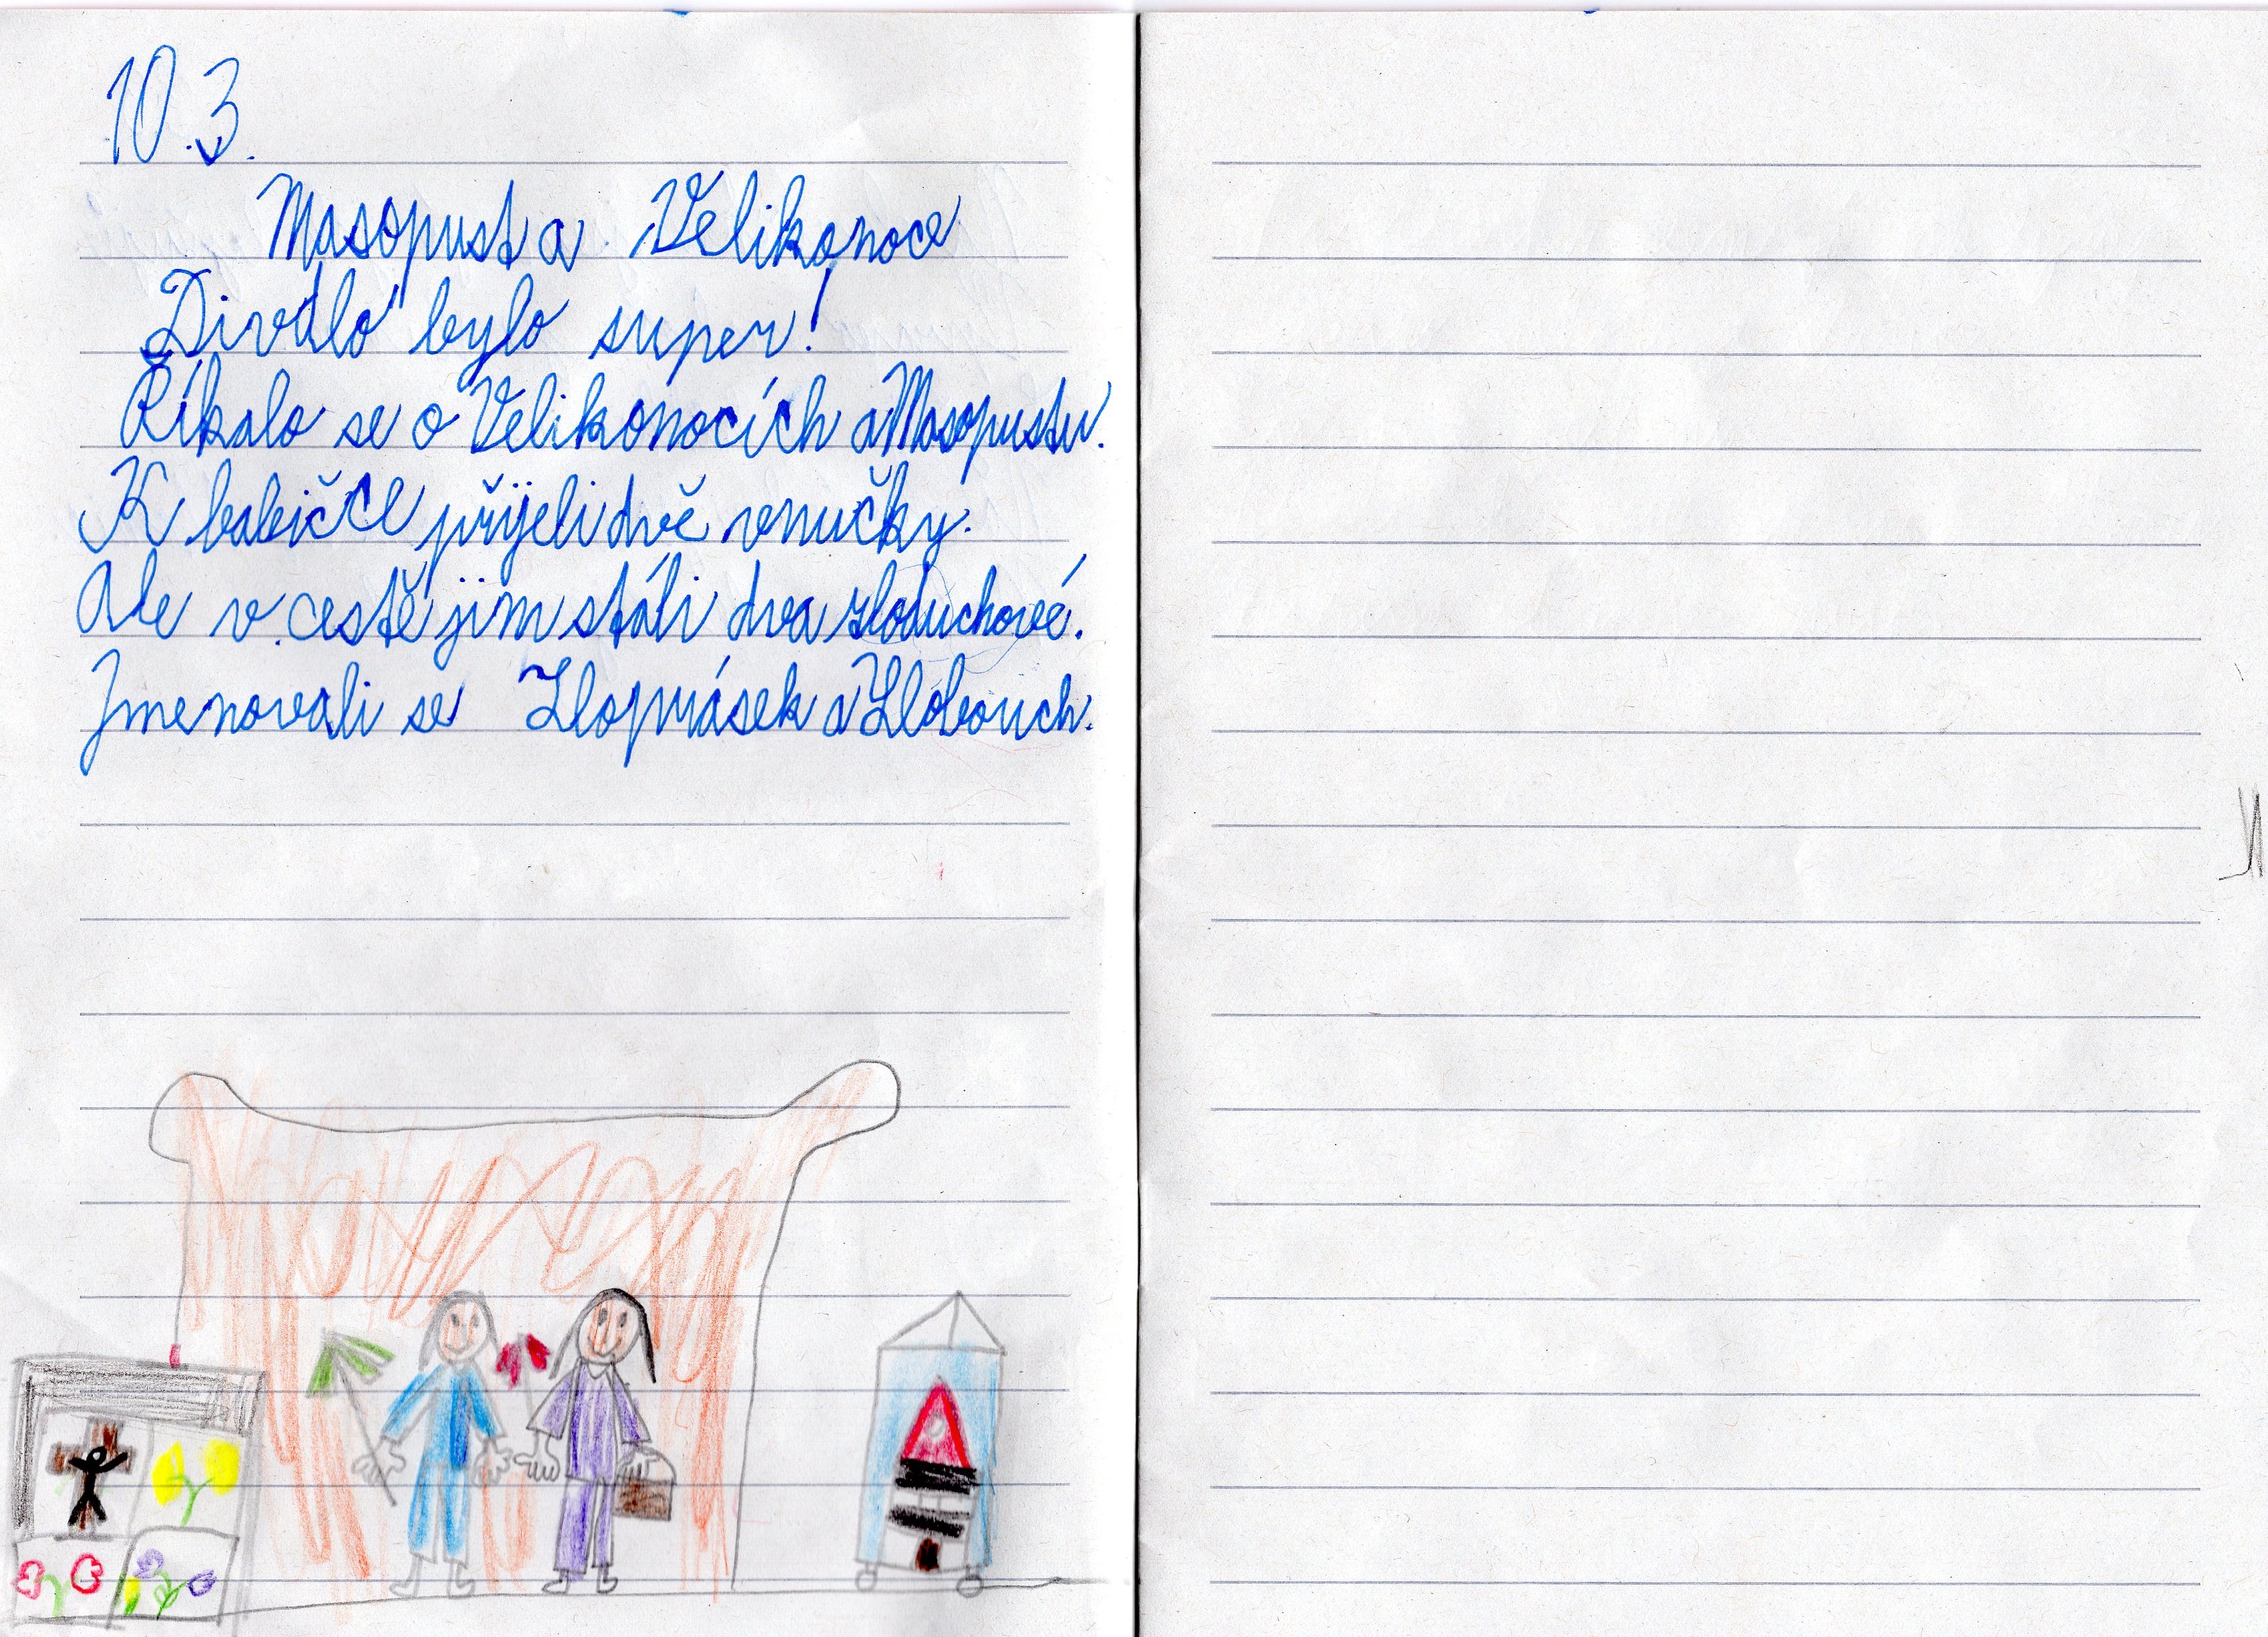 10.3.
Masopust a Velikonoce
Diválo bylo super!
Říkalo se o Velikonocích a Masopustu.
K babičce přijeli dvě vnučky.
Ale v cestě jim stáli dva zloduchové.
Jmenovali se Zloprásek a Zlobouch.